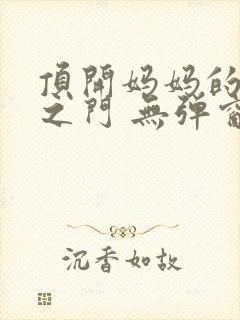 頂開妈妈的
之门 無弹窗
沉香如故